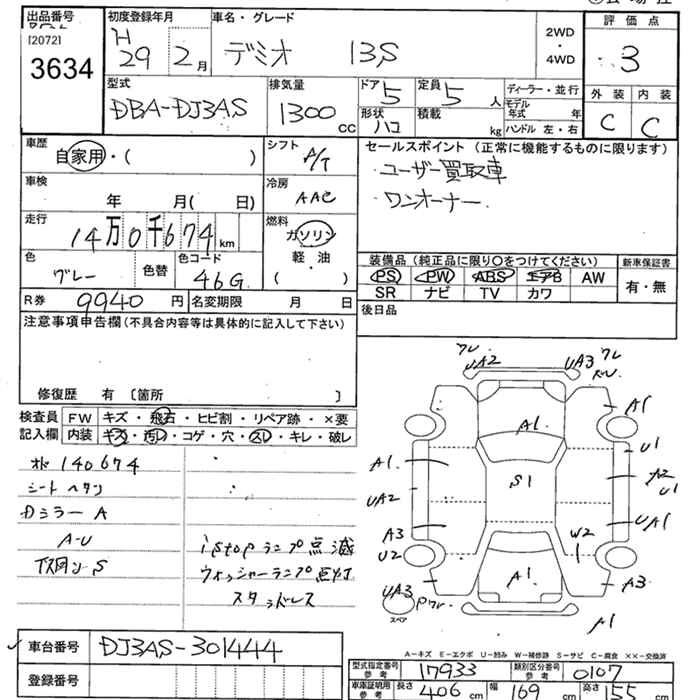 出品番号 初度登録年月 車名・グレード 評価点
[2072]
3634
H29 2月 デミオ 13S 2WD・4WD 3
型式 排気量 ドア 定員 ディーラー・並行 外装 内装
DBA-DJ3AS 1300CC 5 5人 モデル年式 年 C C
形状 積載
ハコ kg ハンドル 左・右
車歴 シフト セールスポイント(正常に機能するものに限ります)
自家用・( ) A/T ・ユーザー買取車
車検 冷房 ・ワンオーナー
年 月( 日) AAC
走行 燃料
14万0千674km ガソリン
軽・油
( )
色 色替 色コード 装備品(純正品に限り〇をつけてください) 新車保証書
グレー 46G PS PW ABS エアB AW 有・無
SR ナビ TV カワ
R券 9940円 名変期限 月 日 後日品
注意事項申告欄(不具合内容等は具体的に記入して下さい)
修復歴 有〔箇所 〕
検査員 FW キズ・飛石・ヒビ割・リペア跡・×要
記入欄 内装 キズ・汚レ・コゲ・穴・スレ・キレ・破レ
140674
シート
ミラー A
A-U
S
istopランプ点滅
ウォッシャーランプ点灯
スタッドレス
UA2 UA3
A1 A1
A1 U1
S1 A2
UA2 U1
A3 UA1
U2 W2
A1 A3
UA3
スペア
A1
車台番号 DJ3AS-301444
登録番号
A-キズ E-エクボ U-凹み W-補修跡 S-サビ C-腐食 ××-交換済
型式指定番号 参考 17933 類別区分番号 参考 0107
車庫証明用 参考 長さ 406cm 幅 169cm 高さ 155cm